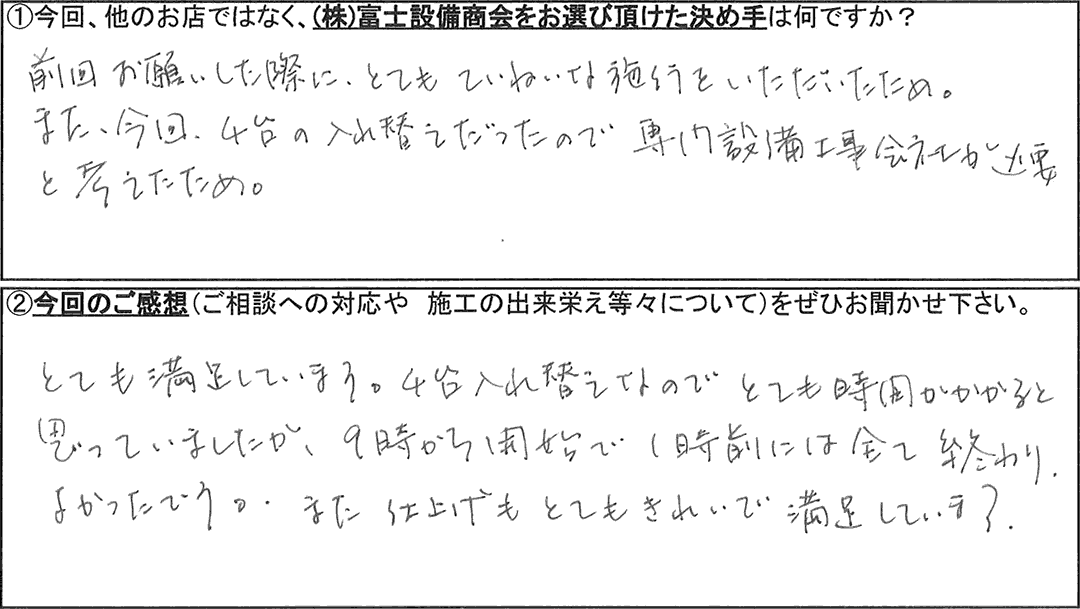 ①今回、他のお店ではなく、(株)富士設備商会をお選び頂けた決め手は何ですか？
前回お願いした際に、とてもていねいな施行をいただいたため。
また、今回、4台の入れ替えだったので専門設備工事会社が必要
と考えたため。
②今回のご感想(ご相談への対応や 施工の出来栄え等々について)をぜひお聞かせ下さい。
とても満足しています。4台入れ替えなのでとても時間がかかると
思っていましたが、9時から開始で1時前には全て終わり、
よかったです。また仕上げもとてもきれいで満足しています。